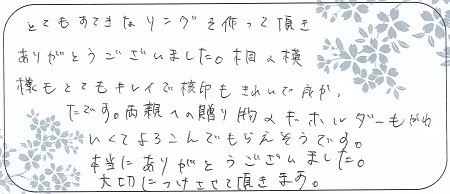 とてもすてきなリングを作って頂き
ありがとうございました。相の模
様もとてもキレイで核印もきれいで良か
たです。両親への贈り物のキーホルダーもかわ
いくてよろこんでもらえそうです。
本当にありがとうございました。
大切につけさせて頂きます。